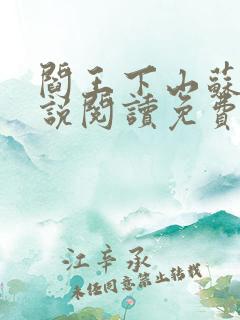 閻王下山蘇
說閱讀免費
江辛承
未任同意禁止转载